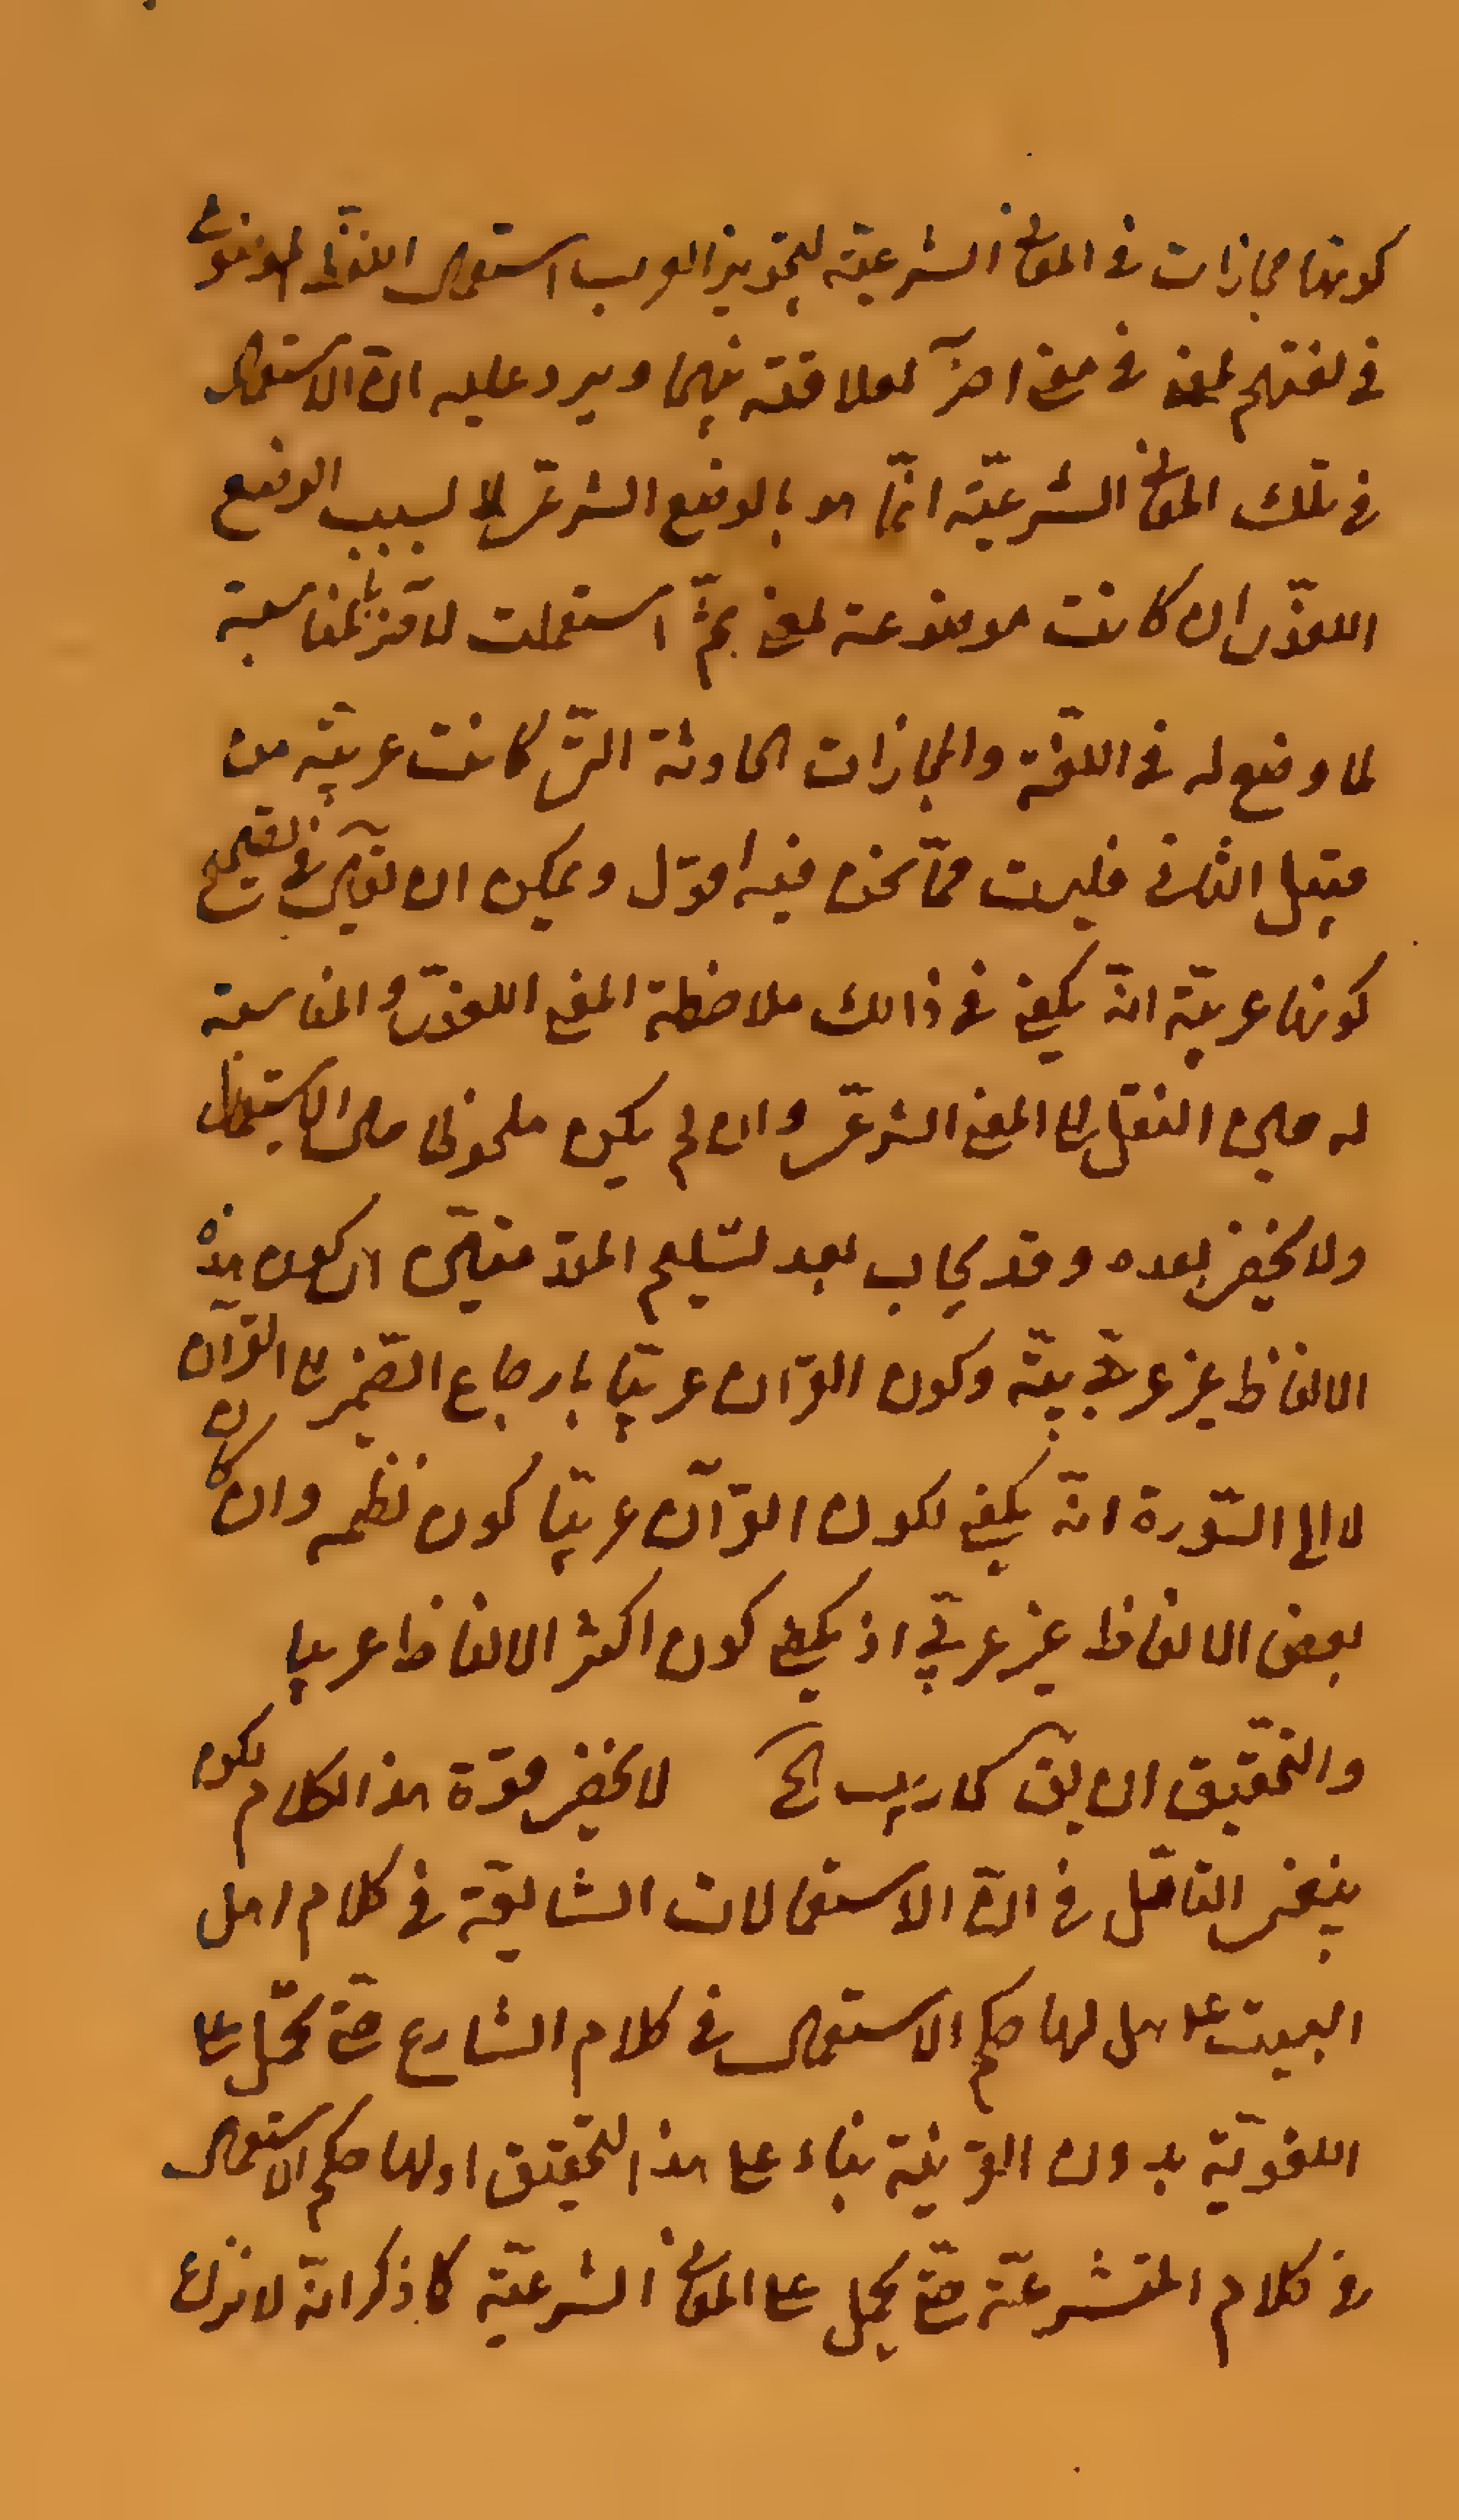 كونها مجازات فى المعانى الشرعيّة لتجويز العرب استعمال اللفظ الموضوع
فى لغتهم لمعنى فى معنى اخر لعلاقة بينهما ويرد عليه انّ الاستعمال
فى تلك المعانى الشرعيّة انّما هو بالوضع الشرعىّ لا بسبب الوضع
اللغوىّ ان كانت موضوعة لمعنى ثمّ استعملت لاقترانها بالمناسبة
لما وضع له فى اللغة والمجازات الحادثة الّتى كانت عربيّة من
قبيل الثانى فليست ممّا نحن فيه اقول ويمكن ان يقال فى تصحيح
كونها عربيّة انّه يكفى فى ذالك ملاحظة المعنى اللغوىّ والمناسبة
له حين النقل الى المعنى الشرعىّ وان لم يكن ملحوظا حين الاستعمال
ولا يخفى بعده وقد يجاب بعد تسليم المقدمتين ان كون هذه
الالفاظ غير عربيّة وكون القرآن عربيّا بارجاع الضّمير الى القرآن
لا الى السّورة انّه يكفى لكون القرآن عربيّا كون نظمه وان كان
بعض الالفاظ غير عربىّ اذ يكفى كون اكثر الالفاظ عربيا
والتحقيق ان يق كما ريب الخ لا يخفى قوّة هذا الكلام لكن
ينبغى التامّل فى انّ الاستعمالات الشايعة فى كلام اهل
البيت ع هل لها حكم الاستعمال فى كلام الشارع حتّى تحمل على
اللغويّة بدون القرينة بناء على هذا التحقيق او لها حكم الاستعمال
فى كلام المتشرعّة حتّى يحمل على المعانى الشرعيّة كما ذكر انّه لا نزاع